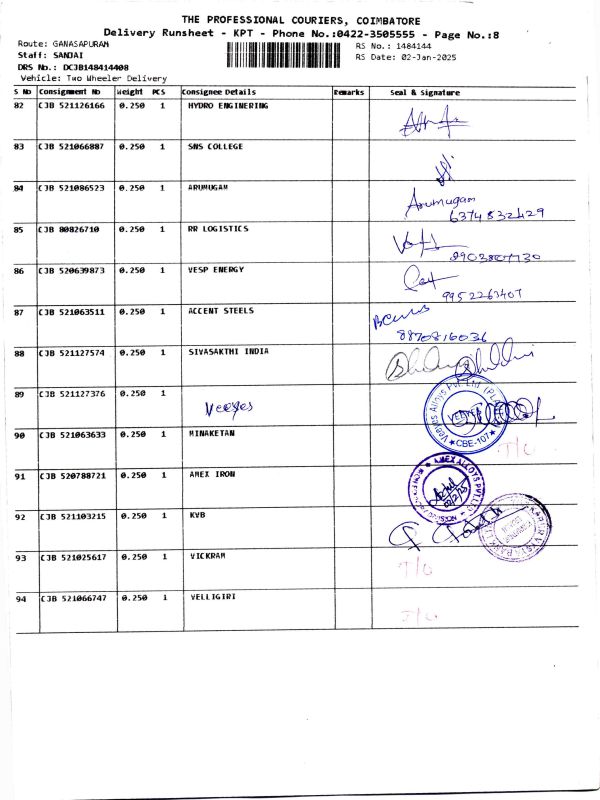 THE PROFESSIONAL COURIERS, COIMBATORE
Delivery Runsheet - KPT - Phone No.:0422-3505555 - Page No.:8
Route: GANASAPURAM RS No.: 1484144
Staff: SANJAI RS Date: 02-Jan-2025
DRS No.: DCJB148414408
Vehicle: Two Wheeler Delivery
S No Consignment No Weight PCS Consignee Details Remarks Seal & Signature
82 CJB 521126166 0.250 1 HYDRO ENGINERING
83 CJB 521066887 0.250 1 SNS COLLEGE
84 CJB 521086523 0.250 1 ARUMUGAM Arumugam
6374832429
85 CJB 80826710 0.250 1 RR LOGISTICS
86 CJB 520639873 0.250 1 VESP ENERGY
9952263407
87 CJB 521063511 0.250 1 ACCENT STEELS
8870816036
88 CJB 521127574 0.250 1 SIVASAKTHI INDIA
89 CJB 521127376 0.250 1 Veeyes
Veeyes Alloys Pvt. Ltd
CBE-107
90 CJB 521063633 0.250 1 MINAKETAN T/O
91 CJB 520788721 0.250 1 AMEX IRON AMEX ALLOYS PVT LTD
92 CJB 521103215 0.250 1 KVB
93 CJB 521025617 0.250 1 VICKRAM T/O
94 CJB 521066747 0.250 1 VELLIGIRI T/O